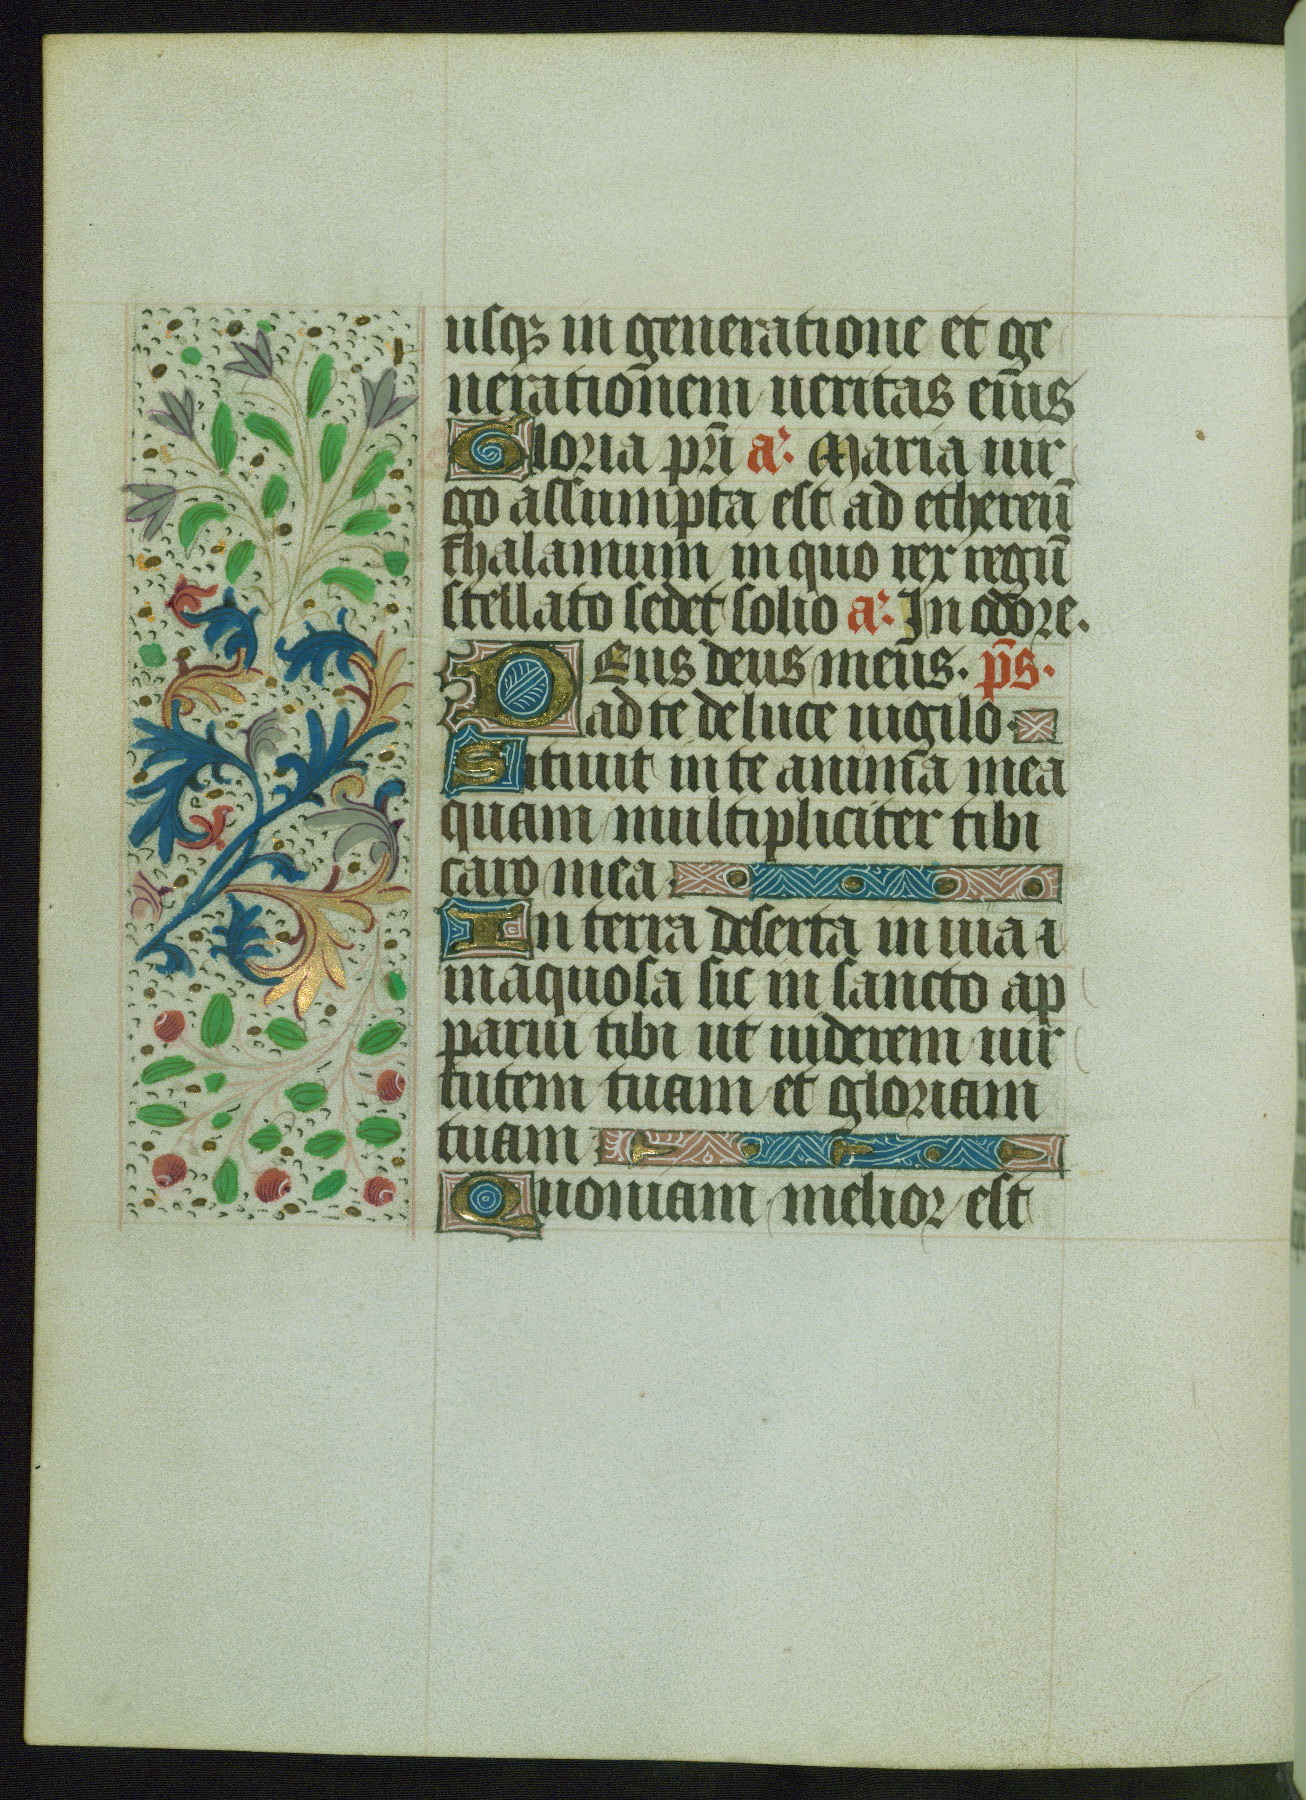 usq₃ in generatione et ge
nerationem ueritas eius
Gloria pr̄i a᷒. Maria uir
go assumpta est ad ethereū
thalamum in quo rex regū
stellato sedet solio a᷒. In odore.
Deus deus meus. p̄s.
ad te de luce uigilo
Sitiuit in te anima mea
quam multipliciter tibi
caro mea
In terra deserta in uia i
inaquosa sic in sancto ap
parui tibi ut uiderem uir
tutem tuam et gloriam
tuam
Quoniam melior est